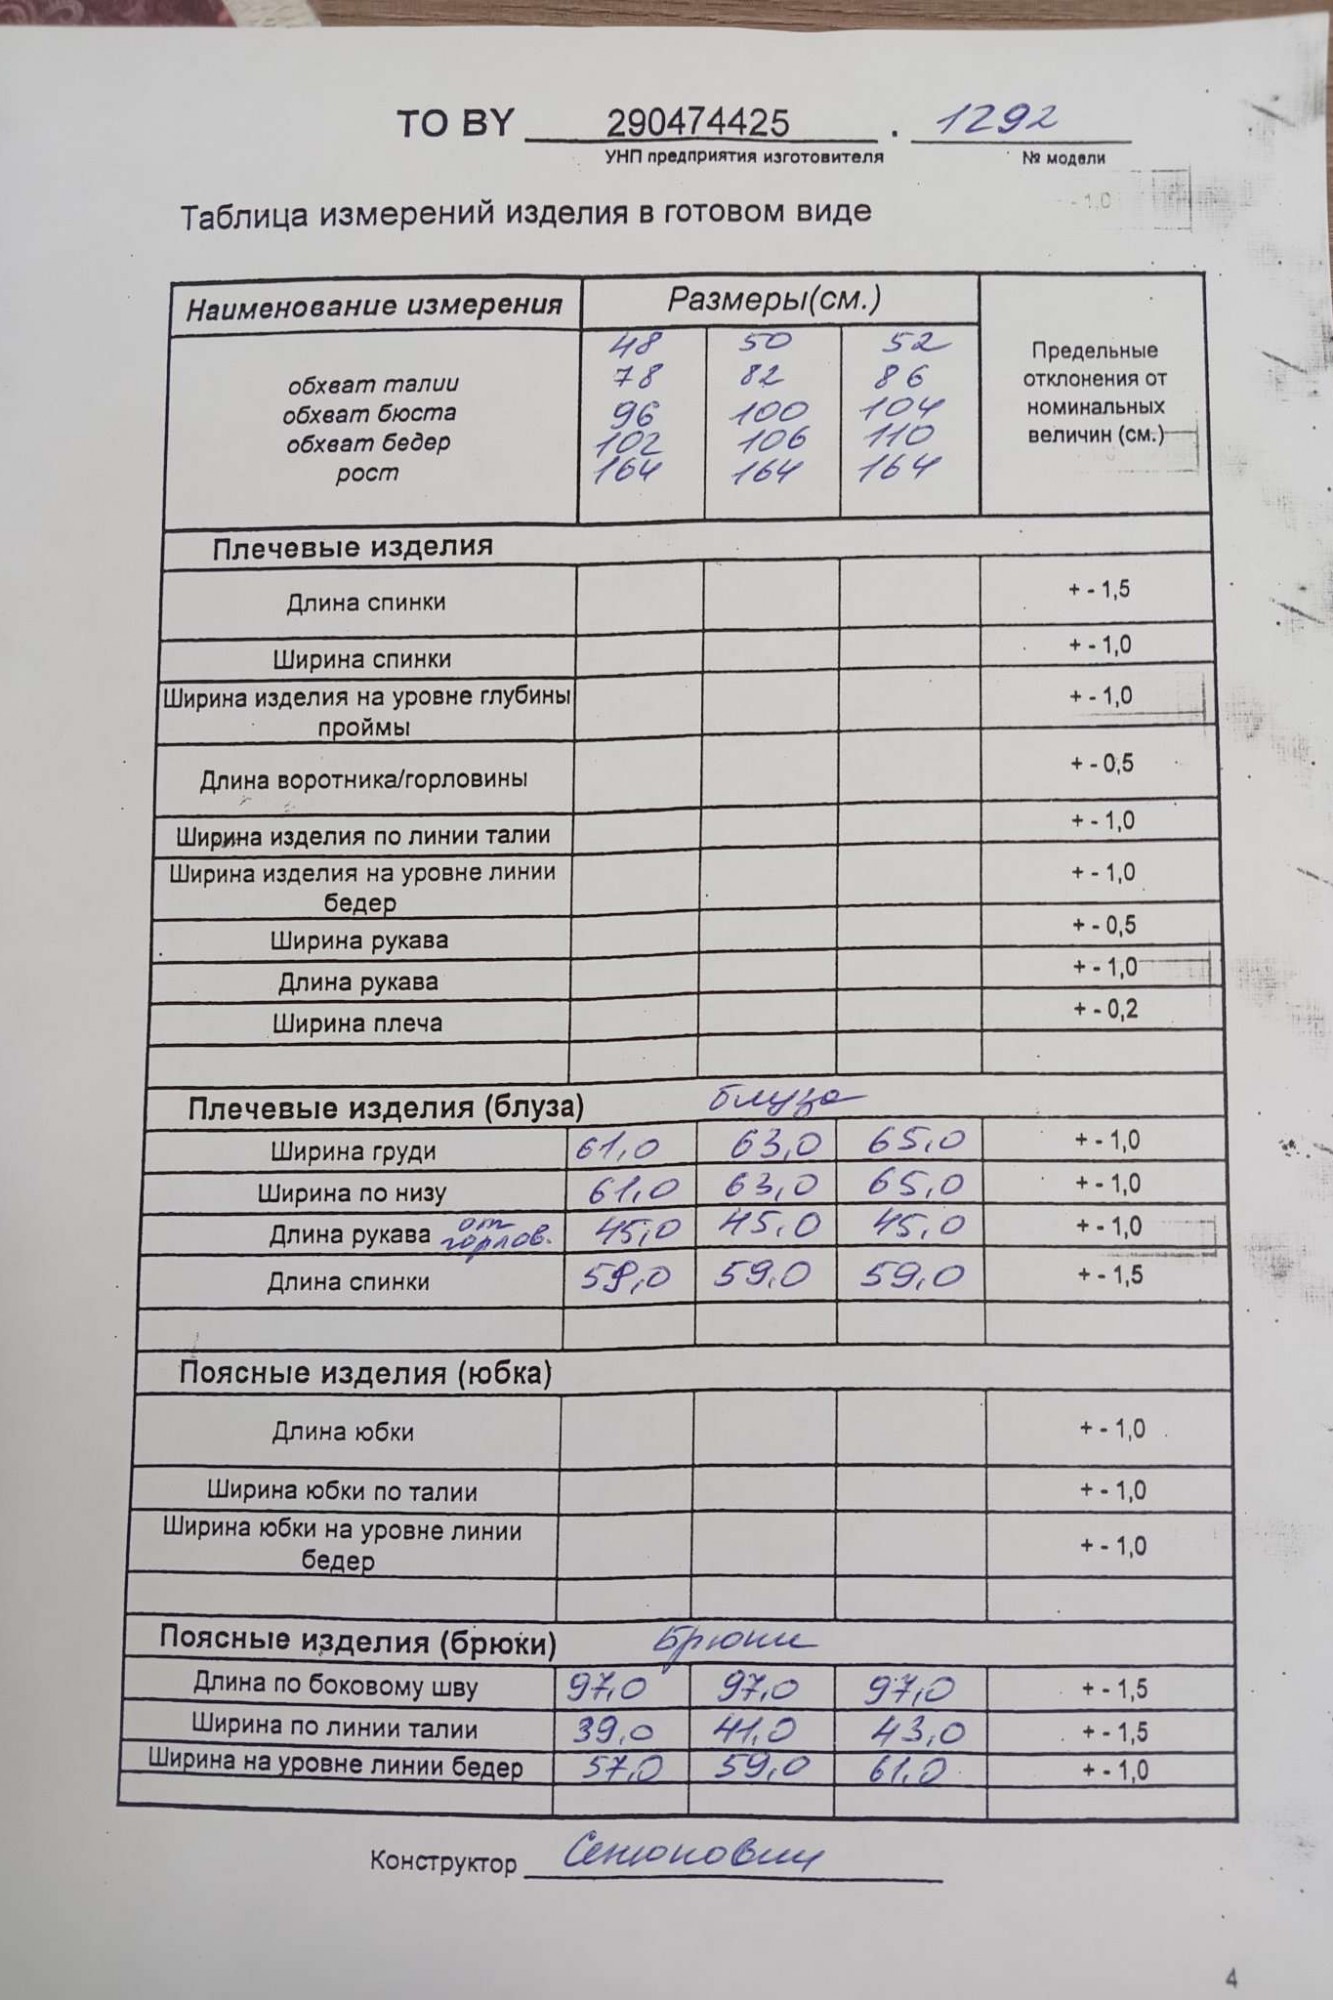 ТО BY 290474425 . 1292
УНП предприятия изготовителя № модели
- 1,0
Таблица измерений изделия в готовом виде
Наименование измерения Размеры(см.) Предельные отклонения от номинальных величин (см.)
48 50 52
обхват талии 78 82 86
обхват бюста 96 100 104
обхват бедер 102 106 110
рост 164 164 164
Плечевые изделия
Длина спинки + - 1,5
Ширина спинки + - 1,0
Ширина изделия на уровне глубины
проймы + - 1,0
Длина воротника/горловины + - 0,5
Ширина изделия по линии талии + - 1,0
Ширина изделия на уровне линии
бедер + - 1,0
Ширина рукава + - 0,5
Длина рукава + - 1,0
Ширина плеча + - 0,2
Плечевые изделия (блуза) блуза
Ширина груди 61,0 63,0 65,0 + - 1,0
Ширина по низу 61,0 63,0 65,0 + - 1,0
Длина рукава от горлов. 45,0 45,0 45,0 + - 1,0
Длина спинки 59,0 59,0 59,0 + - 1,5
Поясные изделия (юбка)
Длина юбки + - 1,0
Ширина юбки по талии + - 1,0
Ширина юбки на уровне линии
бедер + - 1,0
Поясные изделия (брюки) Брюки
Длина по боковому шву 97,0 97,0 97,0 + - 1,5
Ширина по линии талии 39,0 41,0 43,0 + - 1,5
Ширина на уровне линии бедер 57,0 59,0 61,0 + - 1,0
Конструктор
4